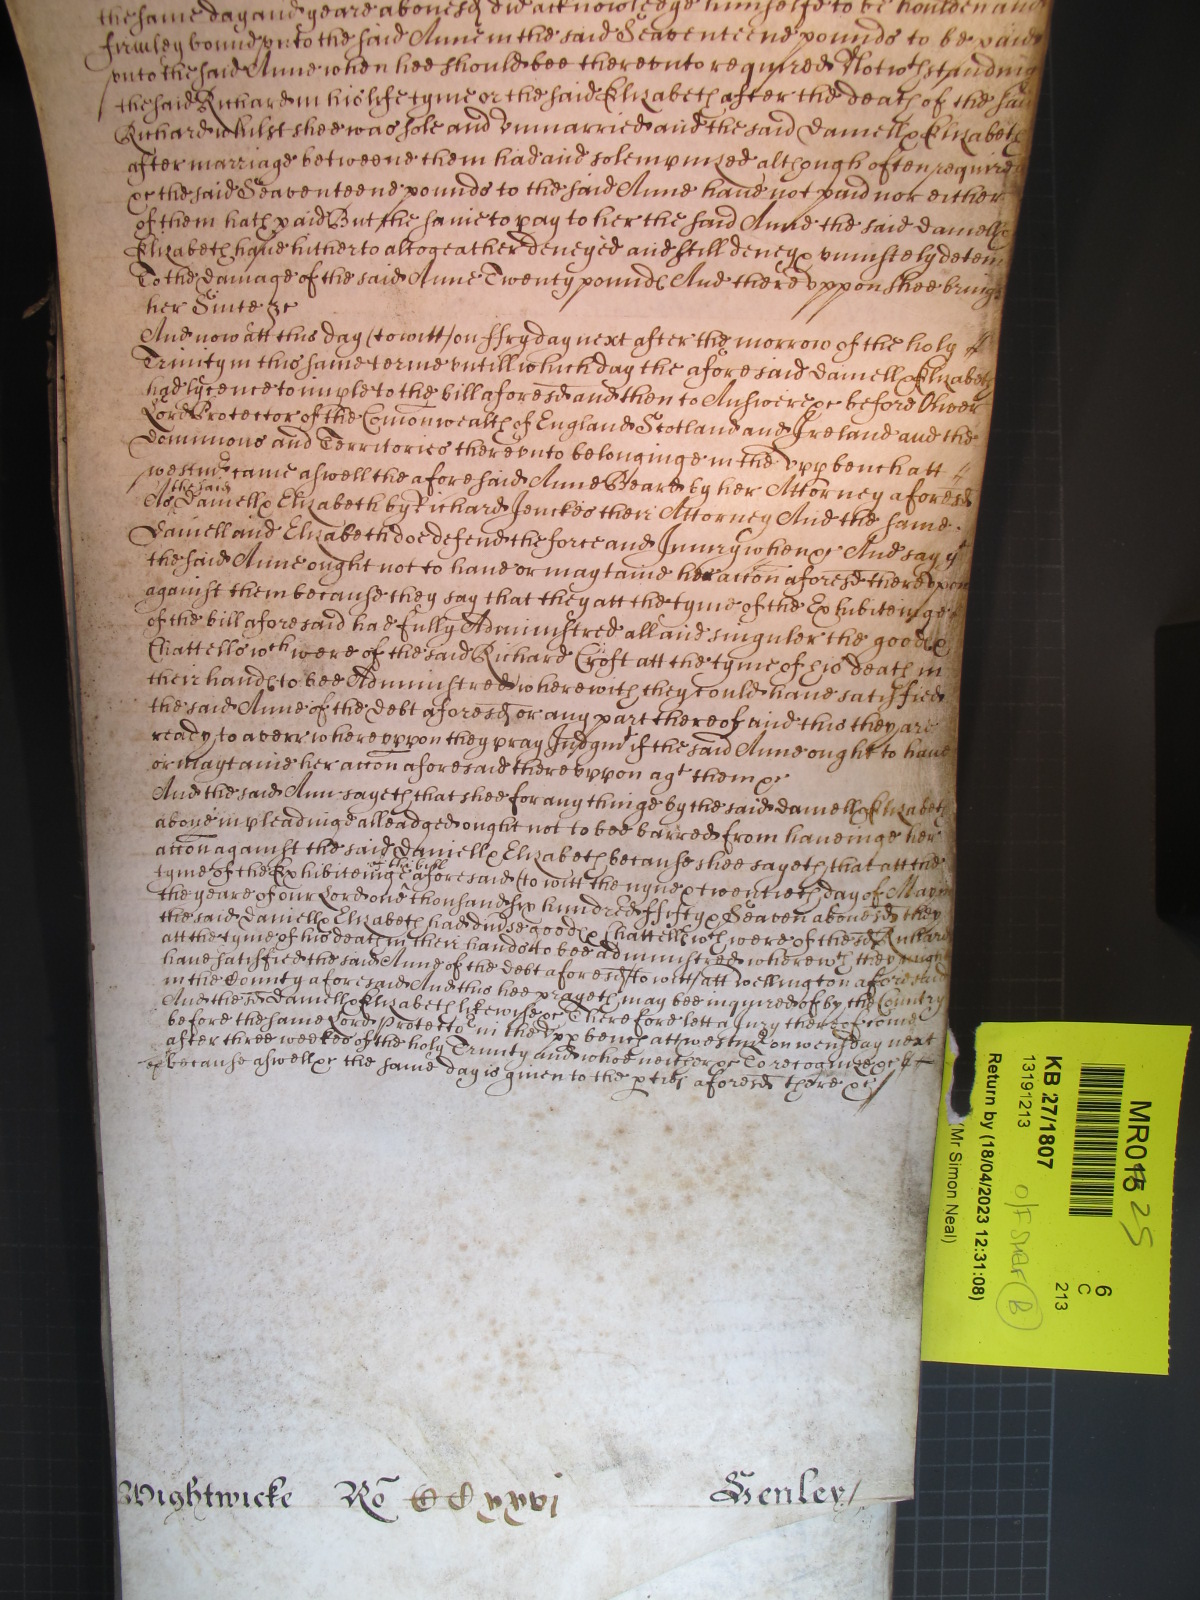 the same day and yeare abovesd did acknowledge himselfe to be houlden and
firmley bound vnto the said Anne in the said Seaventeene pounds to be paid
vnto the said Anne when hee should bee therevnto required Notwthstanding
the said Richard in his life tyme or the said Elizabeth after the death of the said
Richard whilst shee was sole and vnmarried and the said Daniell & Elizabeth
after marriage betweene them had and solempnized although often required
&c the said Seaventeene pounds to the said Anne have not paid nor either
of them hath paid But the same to pay to her the said Anne the said Daniell &
Elizabeth have hitherto altogeather deneyed and still deney & vniustely detein
To the damage of the said Anne Twenty pounds And therevppon shee brings
her Suite &c
And now att this day (to witt) on ffryday next after the morrow of the holy
Trinity in this same terme vntill which day the aforesaid Daniell & Elizabeth
had lycence to imple to the bill aforesd and then to Answere &c before Oliver
Lord Protector of the Comonwealth of England Scotland and Ireland and the
Dominions and Territories therevnto belonginge in the vpp bench att
westmr came aswell the aforesaid Anne Beard by her Attorney aforesd
As the said Daniell & Elizabeth by Richard Jenckes their Attorney And the same
Daniell and Elizabeth doe defend the force and Iniury when &c And say yt
the said Anne ought not to have or maytaine her accon aforesd therevppon
against them because they say that they att the tyme of the Exhibiteinge
of the bill aforesaid had fully Administred all and singuler the goods &
Chattells wch were of the said Richard Croft att the tyme of his death in
their hands to bee Administred wherewith they could have satisfied
the said Anne of the debt aforesd or any part thereof and this they are
ready to averr wherevppon they pray Judgmt if the said Anne ought to have
or maytaine her accon aforesaid therevppon agt them &c
And the said Ann sayeth that shee for any thinge by the said Daniell & Elizabeth
above in pleadinge alleadged ought not to bee barred from haveinge her
accon against the said Daniell & Elizabeth because shee sayeth that att the
tyme of the Exhibiteinge of the bill aforesaid (to witt the nyne & twentieth day of May in
the yeare of our Lord one thousand six hundred ffifty & Seaven abovesd they
the said Daniell & Elizabeth had diverse goods & Chattells wch were of the sd Richard
att the tyme of his death in their hands to bee administred wherewth they might
have satisfied the said Anne of the debt aforesd (to witt) att Wellington aforesaid
in the County aforesaid And this hee prayeth may bee inquired of by the Country
And the sd Daniell & Elizabeth likewise &c Therefore lett a Jury thereof come
before the same Lord Protector in the vpp bench att westmr on wensday next
after three weekes of the holy Trinity and whoe neither &c To recognize &c
Because aswell &c the same day is given to the pties aforesd there &c
Wightwicke Ro CCxxvi Henley
MR01 25
KB 27/1807
13191213
Return by (18/04/2023 12:31:08)
(Mr Simon Neal)
6
C
213
B